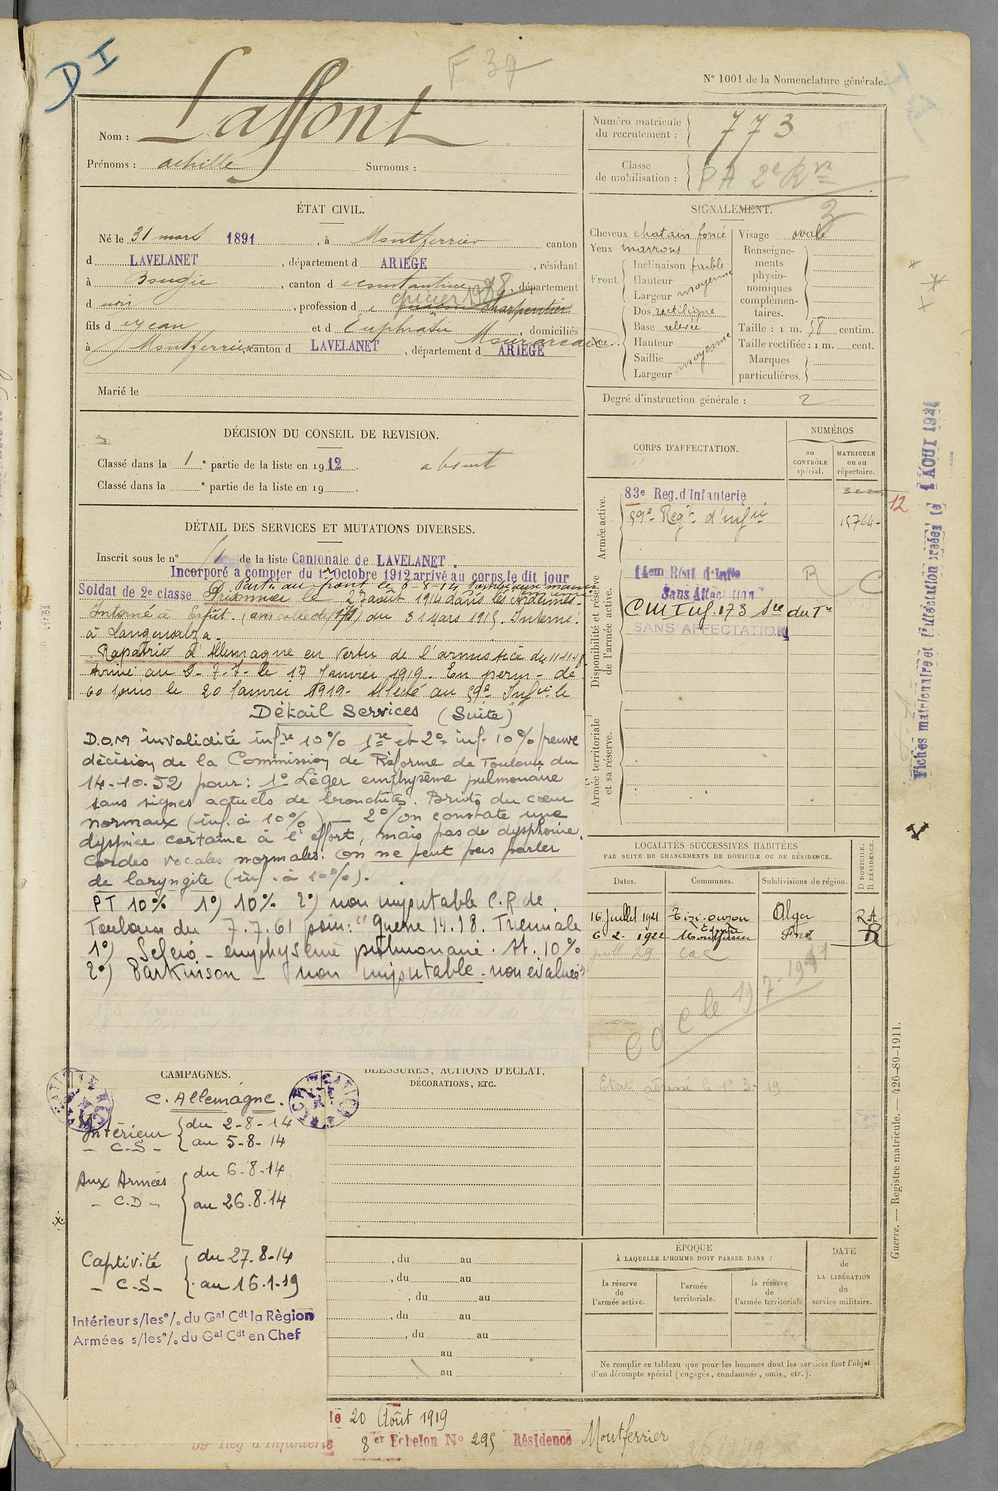 D I
F 39
N° 1001 de la Nomenclature générale.
Nom : Laffont
Prénoms : achille Surnoms :
Numéro matricule du recrutement : 773
Classe de mobilisation : PA 2e Rve
ÉTAT CIVIL.
Né le 31 mars 1891, à Montferrier canton
d LAVELANET, département d ARIEGE, résidant
à Bougie, canton d Constantine, département
d , profession d charpentier
fils d Jean et d Euphrasie domiciliés
à Montferrier canton d LAVELANET, département d ARIEGE
Marié le
SIGNALEMENT.
3
Cheveux chatain foncé
Yeux marrons
Front Inclinaison fuible
Hauteur
Largeur moyenne
Dos rectiligne
Base relevée
Hauteur
Saillie
Largeur moyenne
Visage ovale
Renseignements physionomiques complémentaires.
Taille : 1 m. 58 centim.
Taille rectifiée : 1 m. cent.
Marques particulières.
Degré d'instruction générale : 2
DÉCISION DU CONSEIL DE REVISION.
Classé dans la 1e partie de la liste en 1912. absent
Classé dans la e partie de la liste en 19
CORPS D'AFFECTATION.
NUMÉROS
au CONTRÔLE spécial.
MATRICULE ou au répertoire.
Armée active.
83e Reg. d'Infanterie
59e Regt d'infie 15764
12
Disponibilité et réserve de l'armée active.
14em Régt d'Inf
Sans Affectation
R C
SANS AFFECTATION
Armée territoriale et sa réserve.
Fiches matriculaire et d'affectation créées le 1 AOUT 192
DÉTAIL DES SERVICES ET MUTATIONS DIVERSES.
Inscrit sous le n° de la liste Cantonale de LAVELANET.
Incorporé a compter du 1er Octobre 1912 arrivé au corps le dit jour
Soldat de 2e classe
Prisonnier le 27 août 1914 dans les Ardennes.
Interné à Erfut. du 31 mars 1915. Interné
à Langensalza.
Rapatrié d'Allemagne en vertu de l'armistice du 11-11-18.
Arrivé au le 17 Janvier 1919. En perm- de
60 jours le 20 Janvier 1919. Affecté au 59e Infie le
Détail Services (Suite)
D.O.M invalidité infre 10% 1re et 2e inf. 10% preuve
décision de la Commission de Réforme de Toulouse du
14-10-52 pour: 1° Léger emphysème pulmonaire
sans signes actuels de bronchite. Bruits du cœur
normaux (inf. à 10%) — 2° on constate une
dyspnée certaine à l'effort, mais pas de dysphonie.
Cordes vocales normales. On ne peut pas parler
de laryngite (inf. à 10%).
PT 10% 1°) 10% 2°) non imputable C.R de
Toulouse du 7.7.61 pour: "Guerre 14.18. Triennale
1°) Scléro-emphysème pulmonaire. At. 10%
2°) Parkinson — non imputable - non évalué"
LOCALITÉS SUCCESSIVES HABITÉES
PAR SUITE DE CHANGEMENTS DE DOMICILE OU DE RÉSIDENCE.
Dates. Communes. Subdivisions de région. D DOMICILE. R RÉSIDENCE.
16 juillet 1921 Tizi-ouzou Alger R
6-2-1922 Montferrier Foix
CAMPAGNES.
C. Allemagne.
Intérieur - C.S - du 2-8-14 au 5-8-14
Aux Armées - C.D - du 6-8-14 au 26.8.14
Captivité - C.S - du 27.8-14 au 16-1-19
Intérieur s/les°/. du Gal Cdt la Règion
Armées s/les°/. du Gal Cdt en Chef
BLESSURES, ACTIONS D'ÉCLAT,
DÉCORATIONS, ETC.
, du au
, du au
, du au
, du au
, du au
au
au
ÉPOQUE
À LAQUELLE L'HOMME DOIT PASSER DANS :
la réserve de l'armée active.
l'armée territoriale.
la réserve de l'armée territoriale
DATE de LA LIBÉRATION du service militaire.
Ne remplir ce tableau que pour les hommes dont les services font l'objet
d'un décompte spécial (engagés, condamnés, omis, etc.).
Guerre. — Registre matricule. — 426-89-1911.
le 20 Août 1919
59e Reg d'Infanterie 8er Echelon No 295 Résidence Montferrier